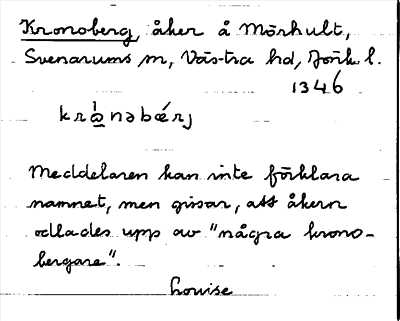 Kronoberg, åker å Mörhult,
Svenarums sn, Västra hd, Jönk. l.
1346
krǫ̀nəbǽrj
Meddelaren kan inte förklara
namnet, men gissar, att åkern
odlades upp av "några krono-
bergare".
Louise